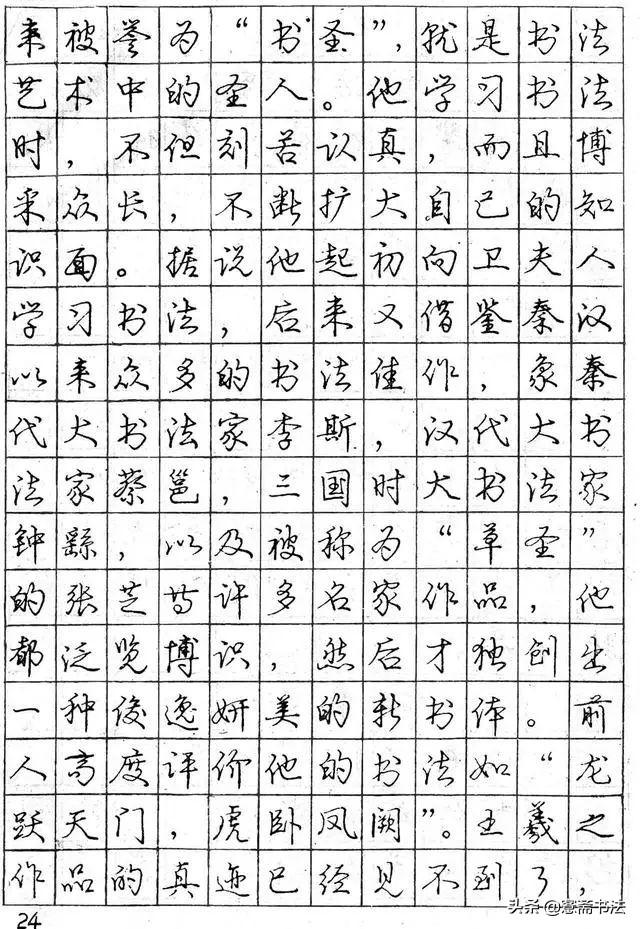 来被誉为“书圣”，就是书法
艺术中的圣人。他学习书法
时，不但刻苦认真，而且博
采众长，不断扩大自己的知
识面。据说他起初向卫夫人
学习书法，后来又借鉴秦汉
以来众多的书法佳作，象秦
代大书法家李斯，汉代大书
法家蔡邕，三国时大书法家
钟繇，以及被称为“草圣”
的张芝等许多名家作品，他
都泛览博识，然后才独创出
一种俊逸妍美的新书体。前
人高度评价他的书法如“龙
跃天门，虎卧凤阙”。王羲之
作品的真迹已经见不到了，
24
头条@憲斋书法